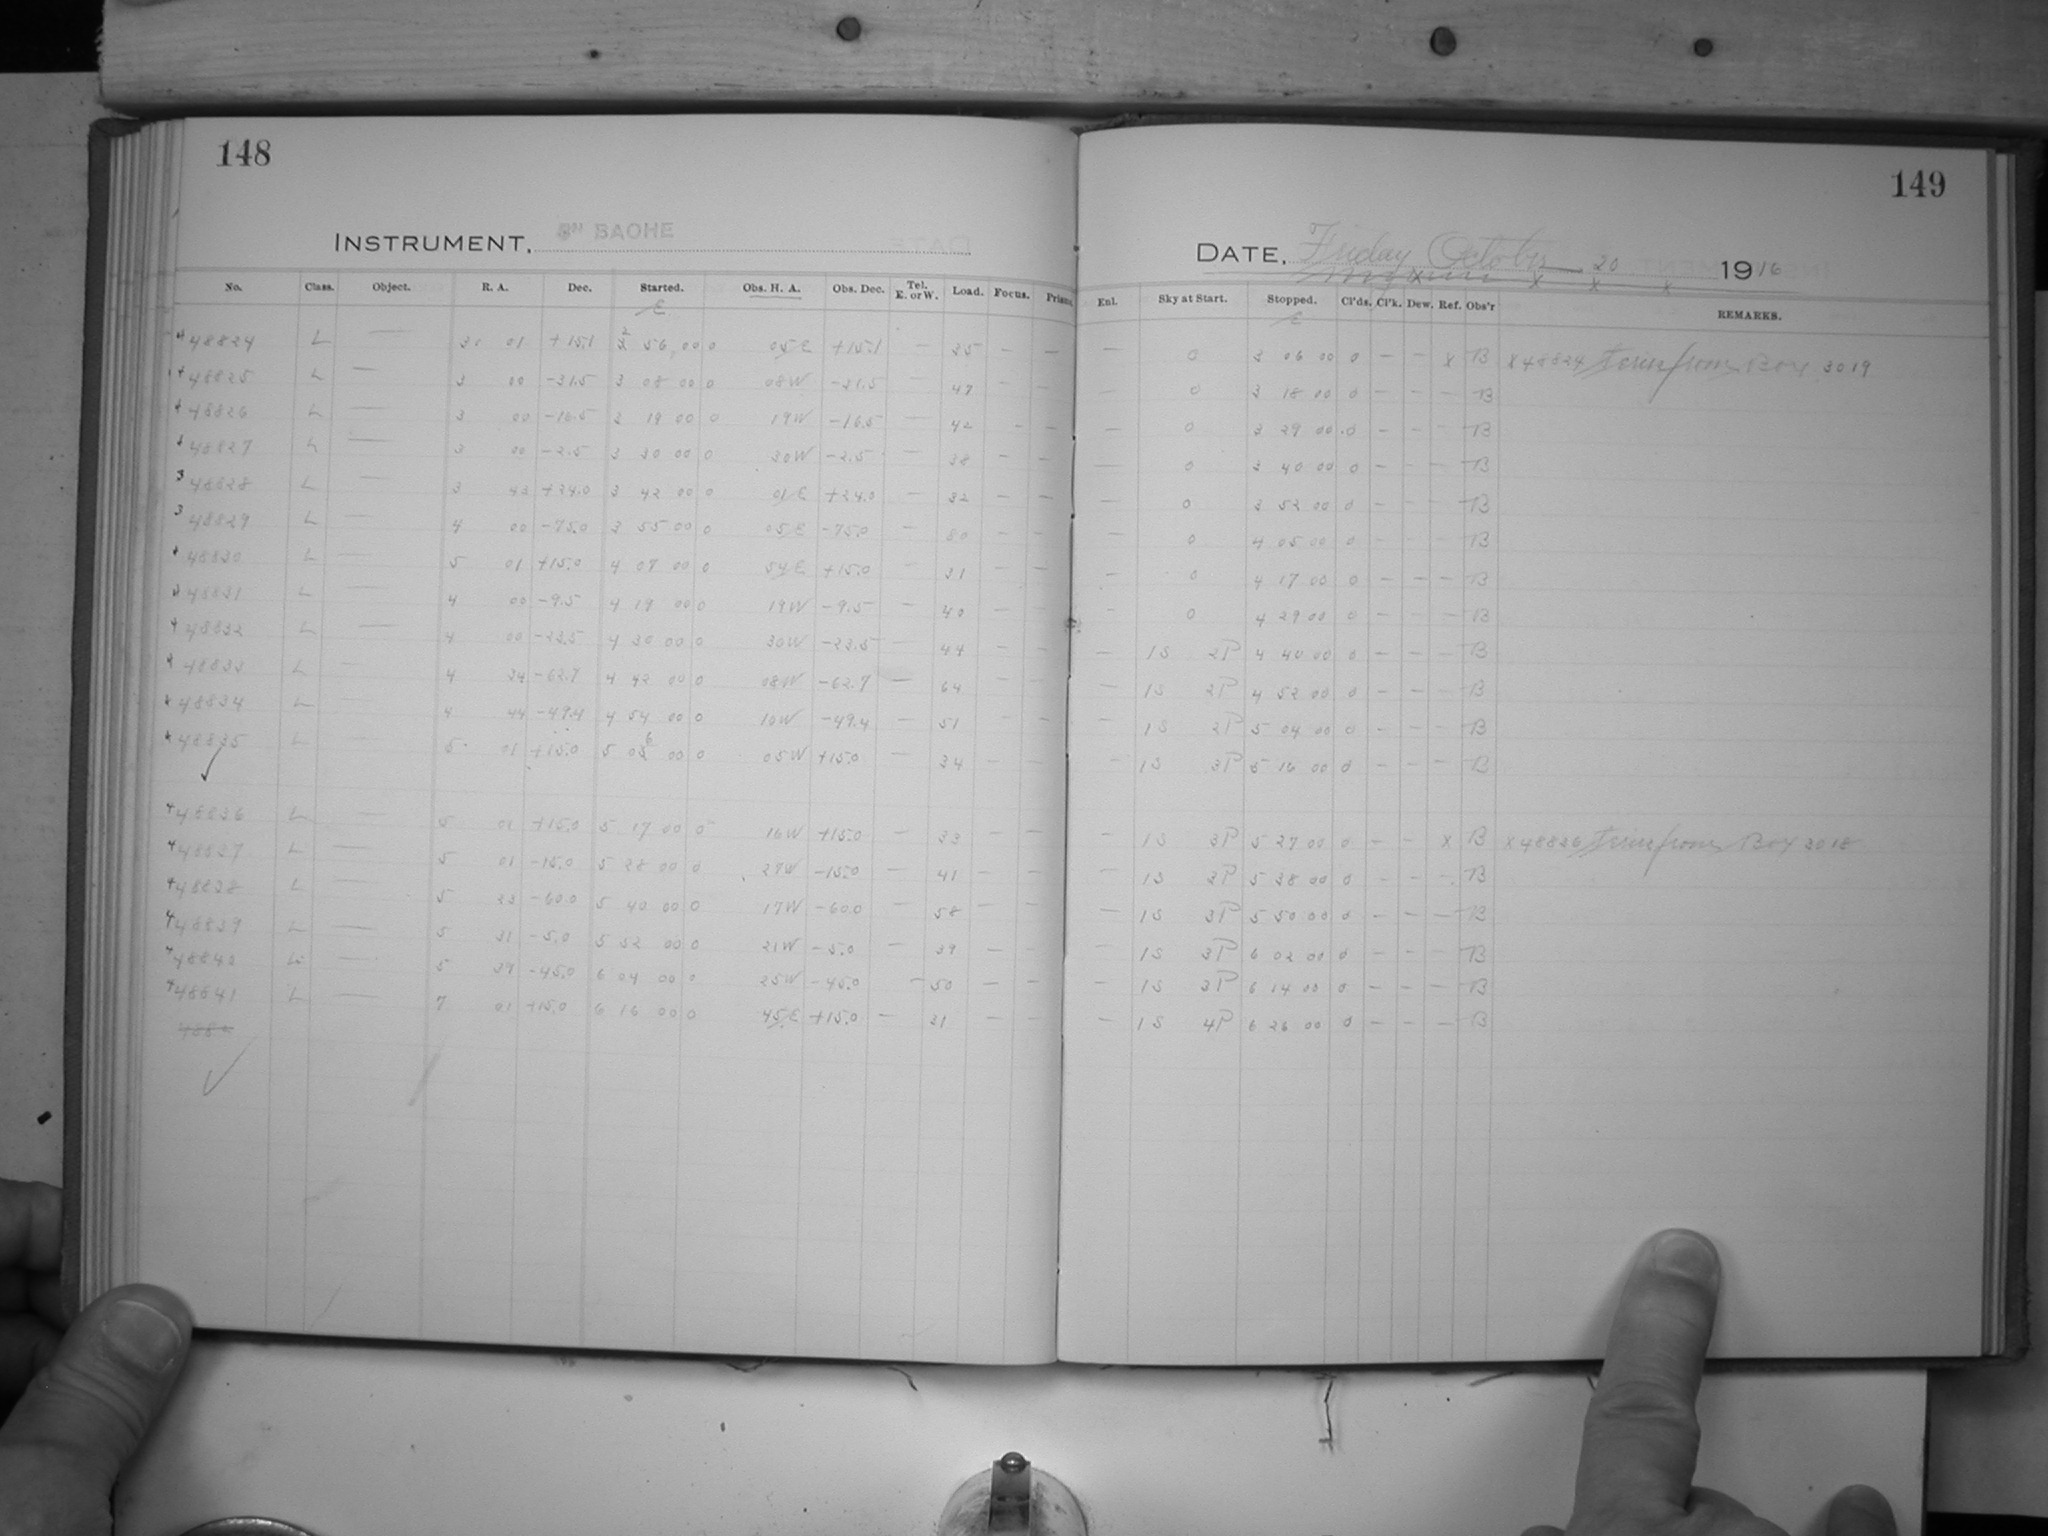 148
149
INSTRUMENT, BAOHE
DATE, Friday October 20 1916
No. Class. Object. R. A. Dec. Started. Obs. H. A. Obs. Dec. Tel. E. or W. Load. Focus. Prism. Enl. Sky at Start. Stopped. Cl'ds. Cl'k. Dew. Ref. Obs'r REMARKS.
48824 L — 01 +15.1 56 00 0 05E +15.1 — 35 — — — 0 3 06 00 0 — — x B x 48824 from Box 3019
48825 L — 3 00 -31.5 3 08 00 0 08W -31.5 — 47 — — — 0 3 18 00 0 — — — B
48826 L — 3 00 -16.5 3 19 00 0 19W -16.5 — 42 — — — 0 3 29 00 0 — — — B
48827 L — 3 00 -2.5 3 30 00 0 30W -2.5 — 38 — — — 0 3 40 00 0 — — — B
48828 L — 3 43 +24.0 3 42 00 0 01E +24.0 — 32 — — — 0 3 52 00 0 — — — B
48829 L — 4 00 -75.0 3 55 00 0 05E -75.0 — 80 — — — 0 4 05 00 0 — — — B
48830 L — 5 01 +15.0 4 07 00 0 54E +15.0 — 31 — — — 0 4 17 00 0 — — — B
48831 L — 4 00 -9.5 4 19 00 0 19W -9.5 — 40 — — — 0 4 29 00 0 — — — B
48832 L — 4 00 -23.5 4 30 00 0 30W -23.5 — 44 — — — 1S 2P 4 40 00 0 — — — B
48833 L — 4 34 -62.7 4 42 00 0 08W -62.7 — 64 — — — 1S 2P 4 52 00 0 — — — B
48834 L — 4 44 -49.4 4 54 00 0 10W -49.4 — 51 — — — 1S 2P 5 04 00 0 — — — B
48835 L — 5 01 +15.0 5 06 00 0 05W +15.0 — 34 — — — 1S 3P 5 16 00 0 — — — B
48836 L — 5 01 +15.0 5 17 00 0 16W +15.0 — 33 — 1S 3P 5 27 00 0 — — x B x 48836 from Box 3018
48837 L — 5 01 -15.0 5 28 00 0 27W -15.0 — 41 — — — 1S 3P 5 38 00 0 — — — B
48838 L — 5 23 -60.0 5 40 00 0 17W -60.0 — 58 — — — 1S 3P 5 50 00 0 — — — B
48839 L — 5 31 -5.0 5 52 00 0 21W -5.0 — 39 — — — 1S 3P 6 02 00 0 — — — B
48840 L — 5 39 -45.0 6 04 00 0 25W -45.0 — 50 — — — 1S 3P 6 14 00 0 — — — B
48841 L — 7 01 +15.0 6 16 00 0 45E +15.0 — 31 — — — 1S 4P 6 26 00 0 — — — B